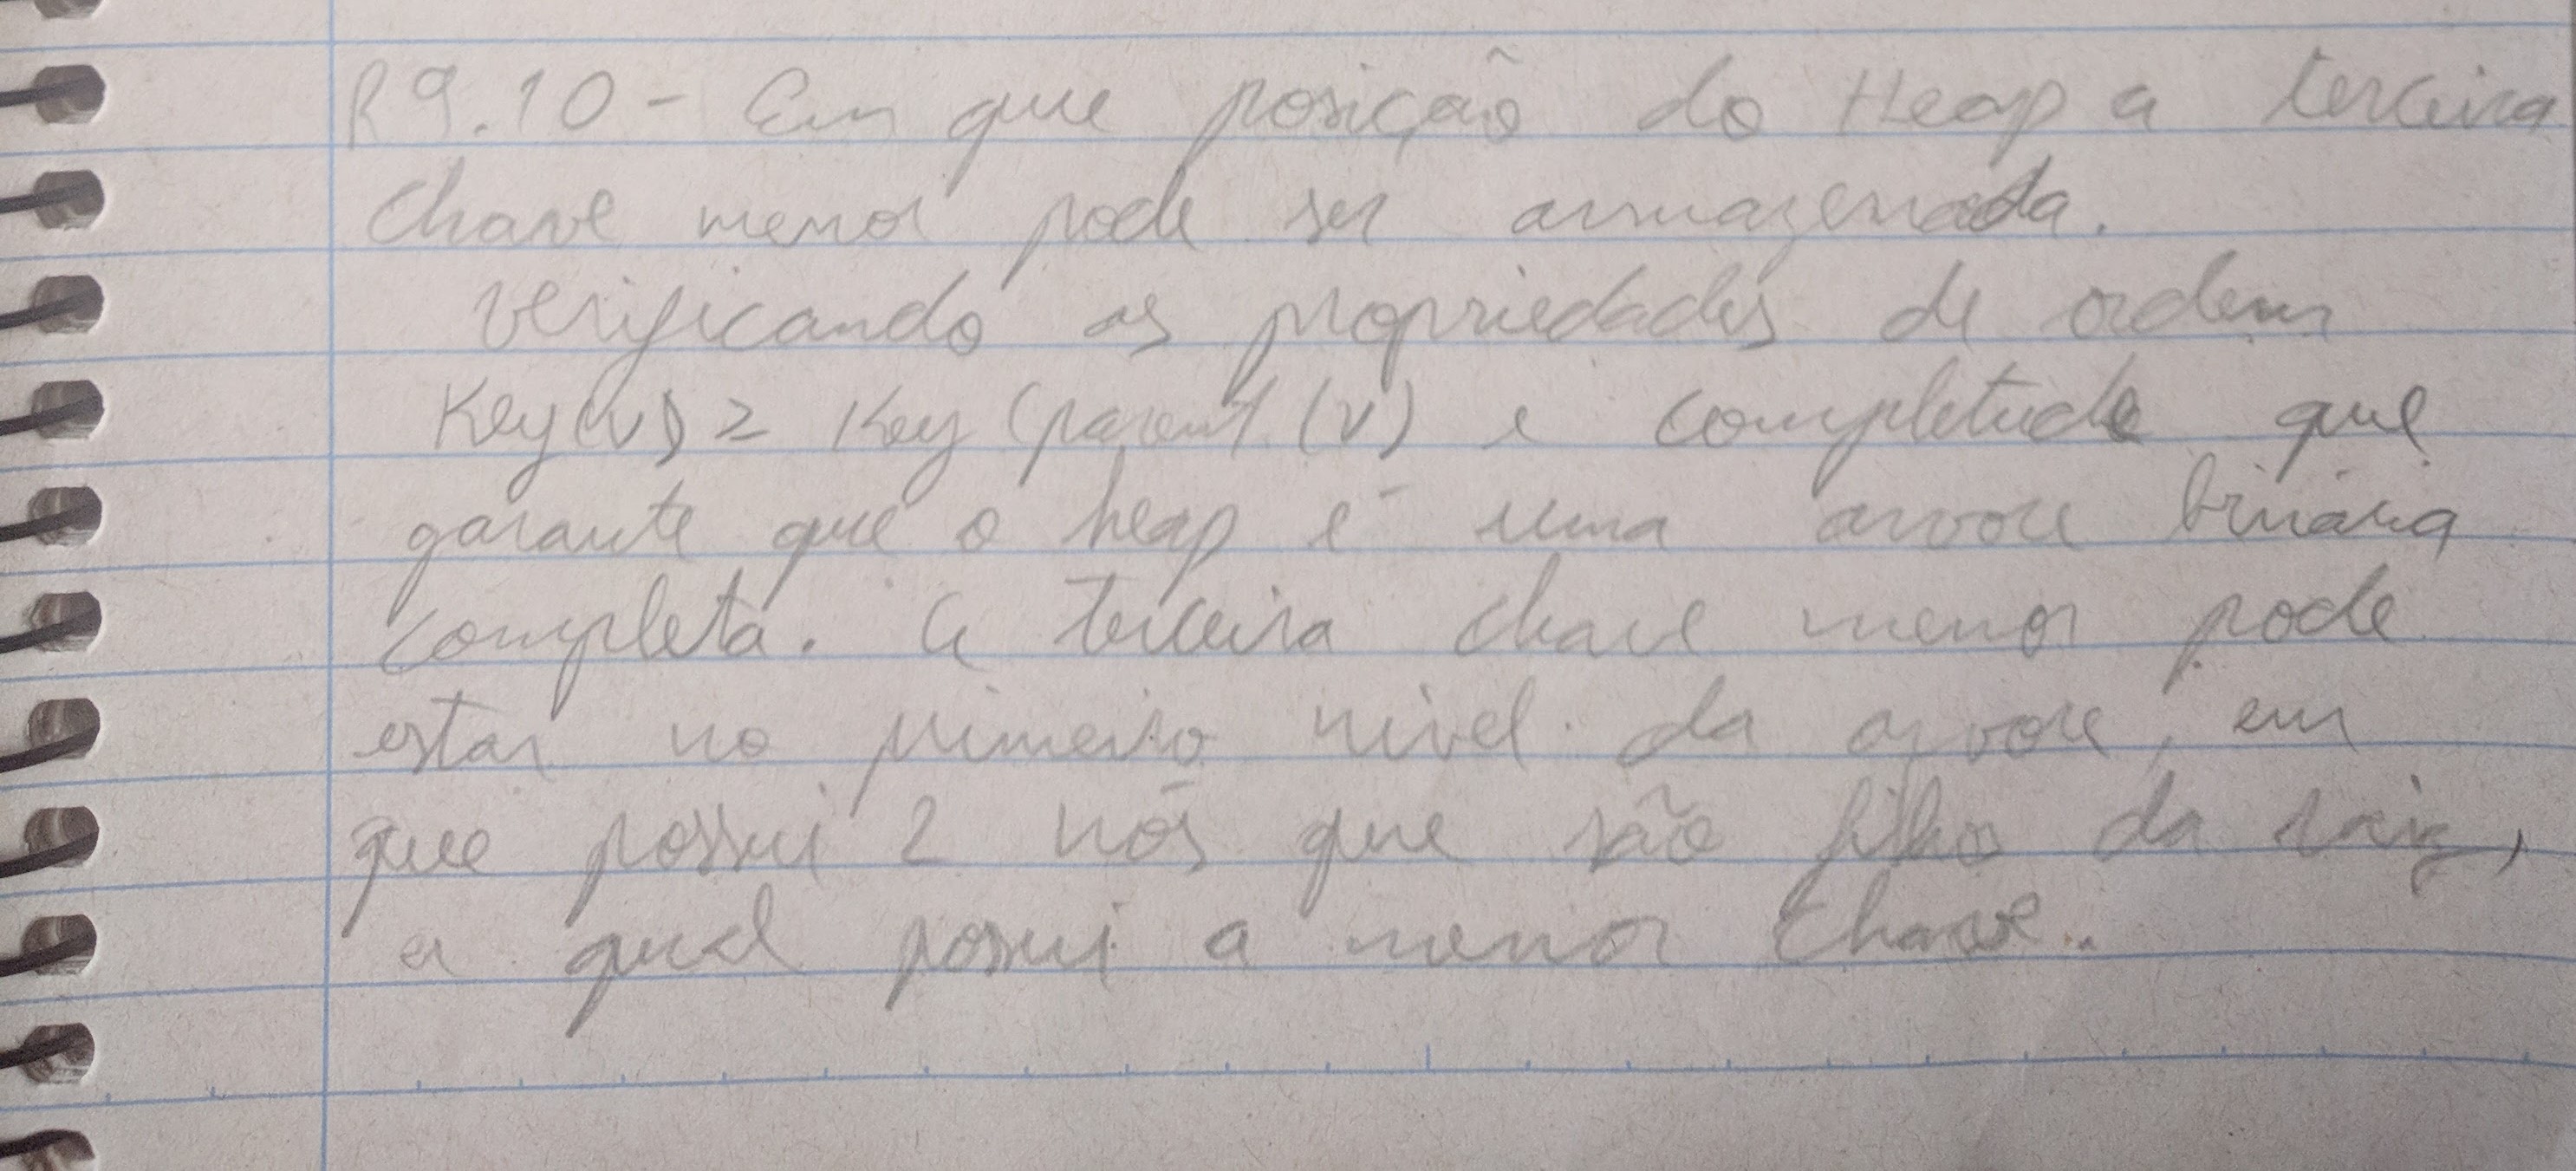 R9.10 - Em que posição do Heap a terceira
chave menor pode ser armazenada.
verificando as propriedades de ordem
Key(v) ≥ Key (parent (v) e completude que
garante que o heap é uma arvore binária
completa. A terceira chave menor pode
estar no primeiro nivel da arvore, em
que possui 2 nós que são filho da raiz,
a qual possui a menor chave.